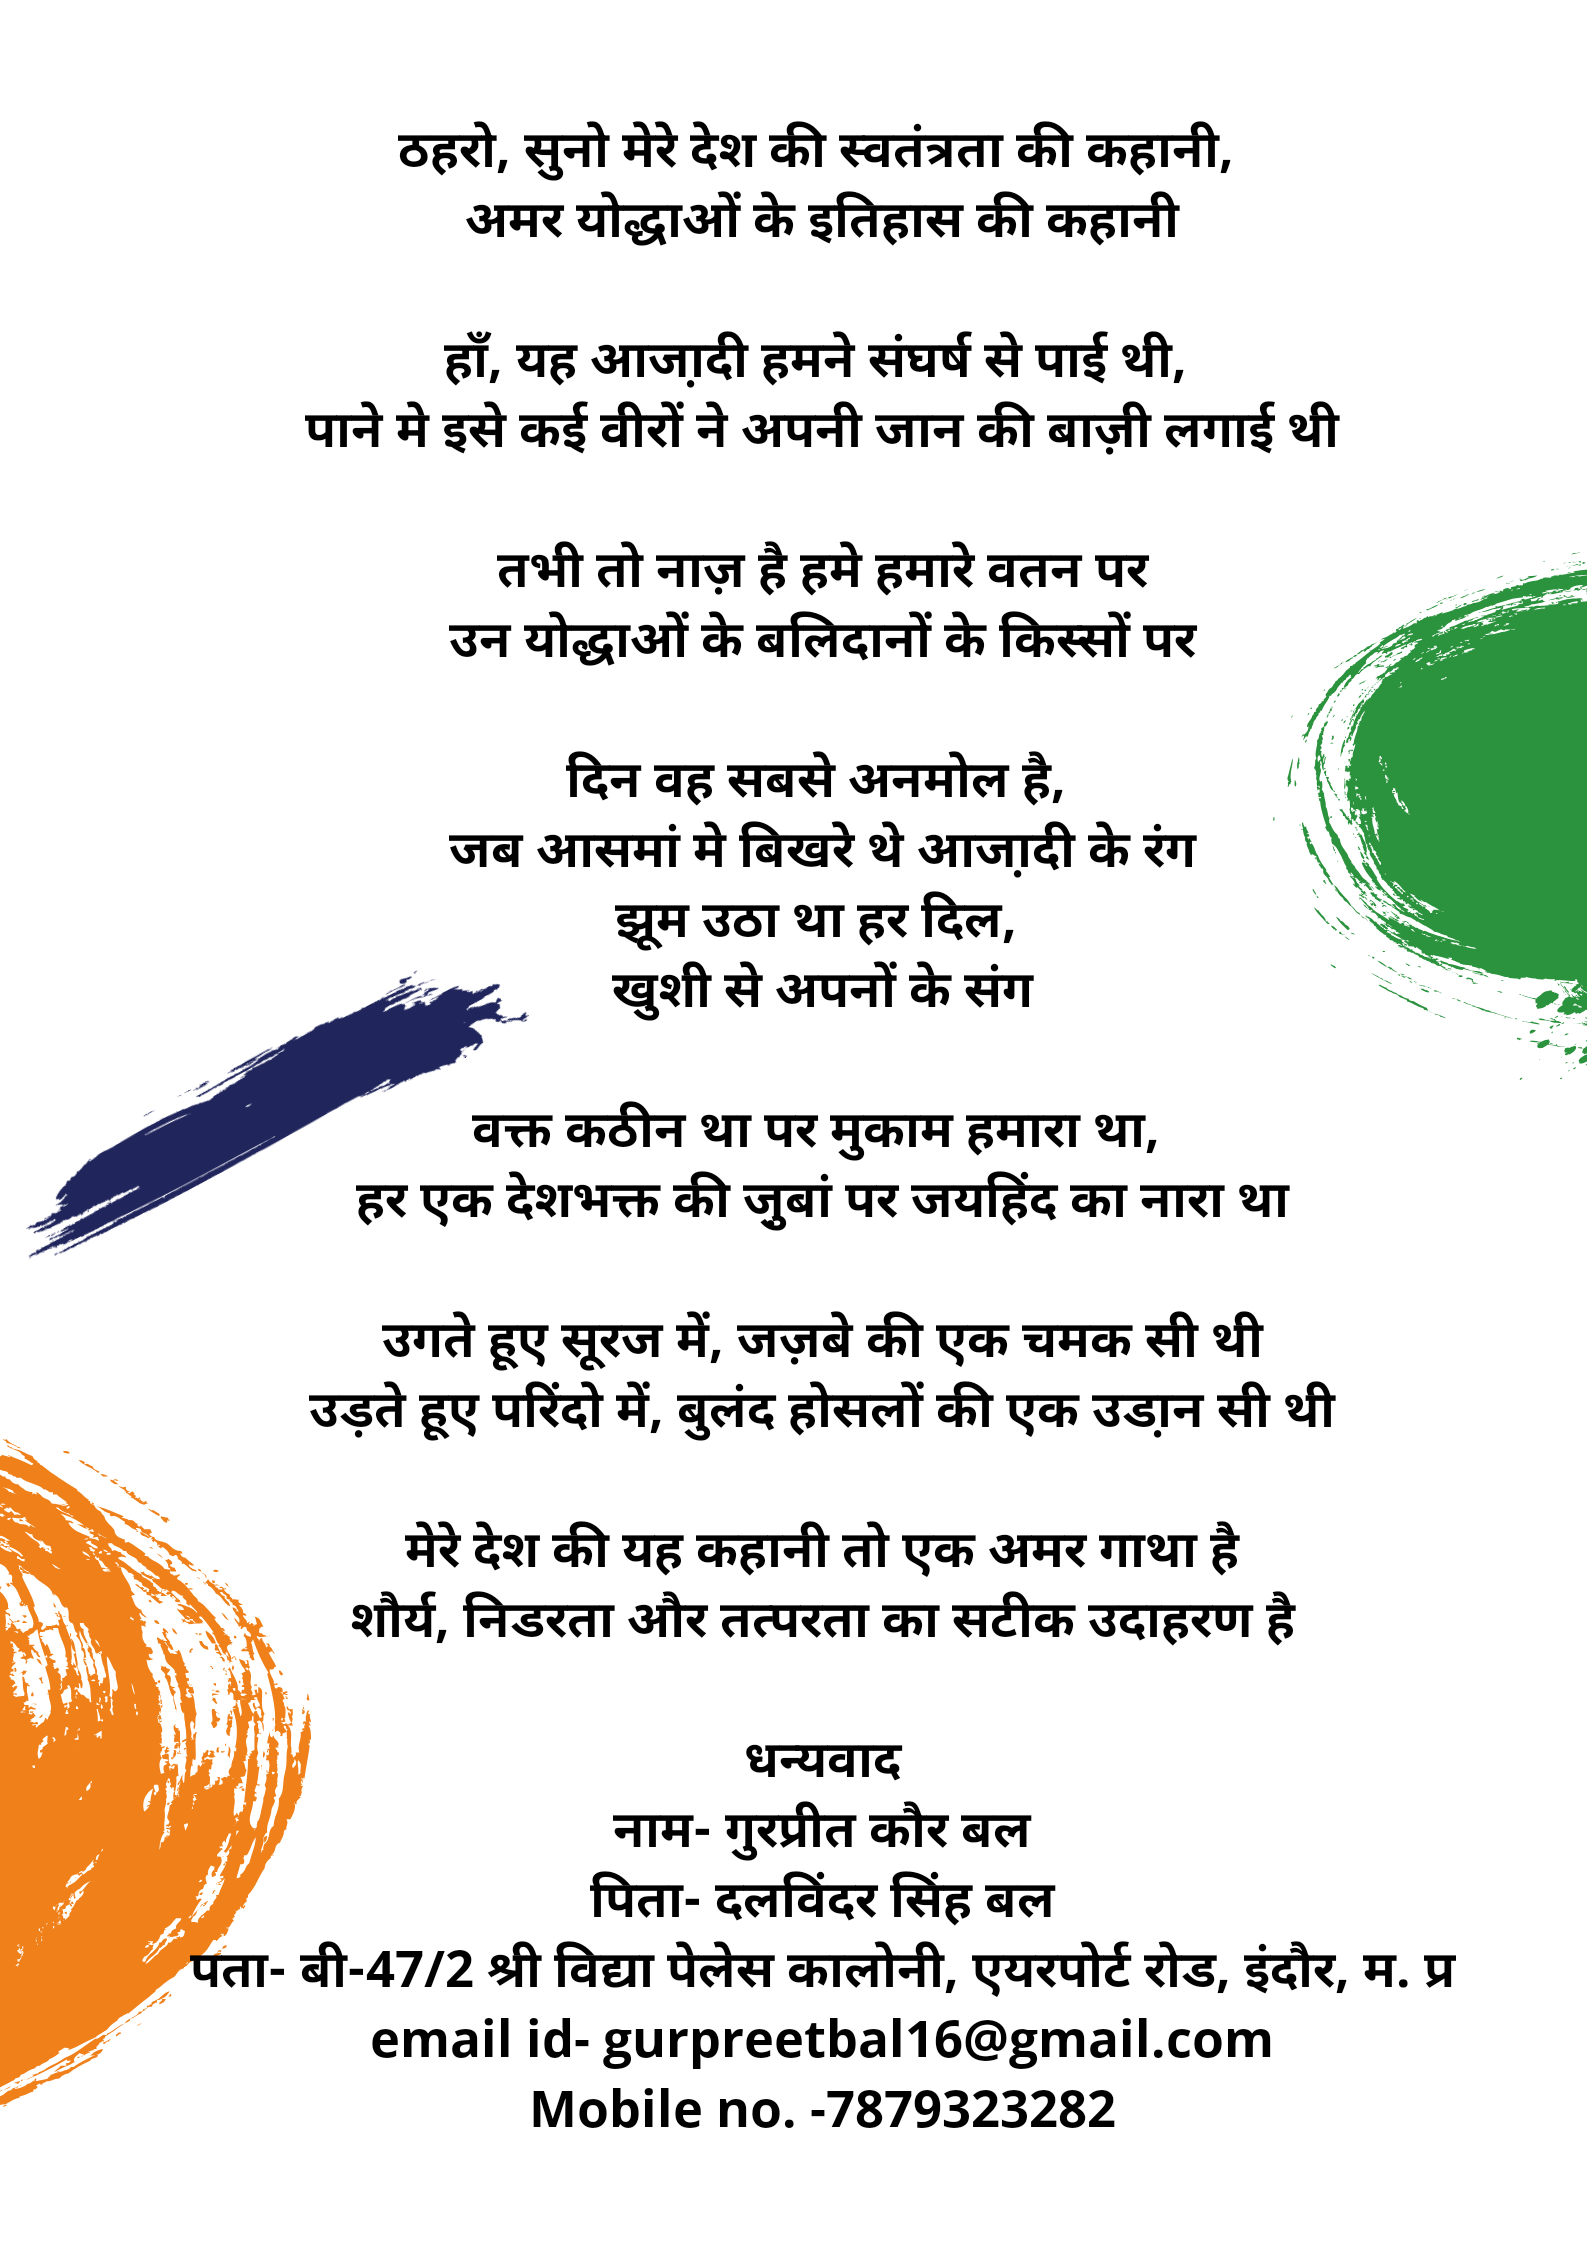 ठहरो, सुनो मेरे देश की स्वतंत्रता की कहानी,
अमर योद्धाओं के इतिहास की कहानी
हाँ, यह आजा़दी हमने संघर्ष से पाई थी,
पाने मे इसे कई वीरों ने अपनी जान की बाज़ी लगाई थी
तभी तो नाज़ है हमे हमारे वतन पर
उन योद्धाओं के बलिदानों के किस्सों पर
दिन वह सबसे अनमोल है,
जब आसमां मे बिखरे थे आजा़दी के रंग
झूम उठा था हर दिल,
खुशी से अपनों के संग
वक्त कठीन था पर मुकाम हमारा था,
हर एक देशभक्त की जुबां पर जयहिंद का नारा था
उगते हूए सूरज में, जज़बे की एक चमक सी थी
उड़ते हूए परिंदो में, बुलंद होसलों की एक उडा़न सी थी
मेरे देश की यह कहानी तो एक अमर गाथा है
शौर्य, निडरता और तत्परता का सटीक उदाहरण है
धन्यवाद
नाम- गुरप्रीत कौर बल
पिता- दलविंदर सिंह बल
पता- बी-47/2 श्री विद्या पेलेस कालोनी, एयरपोर्ट रोड, इंदौर, म. प्र
email id- gurpreetbal16@gmail.com
Mobile no. -7879323282